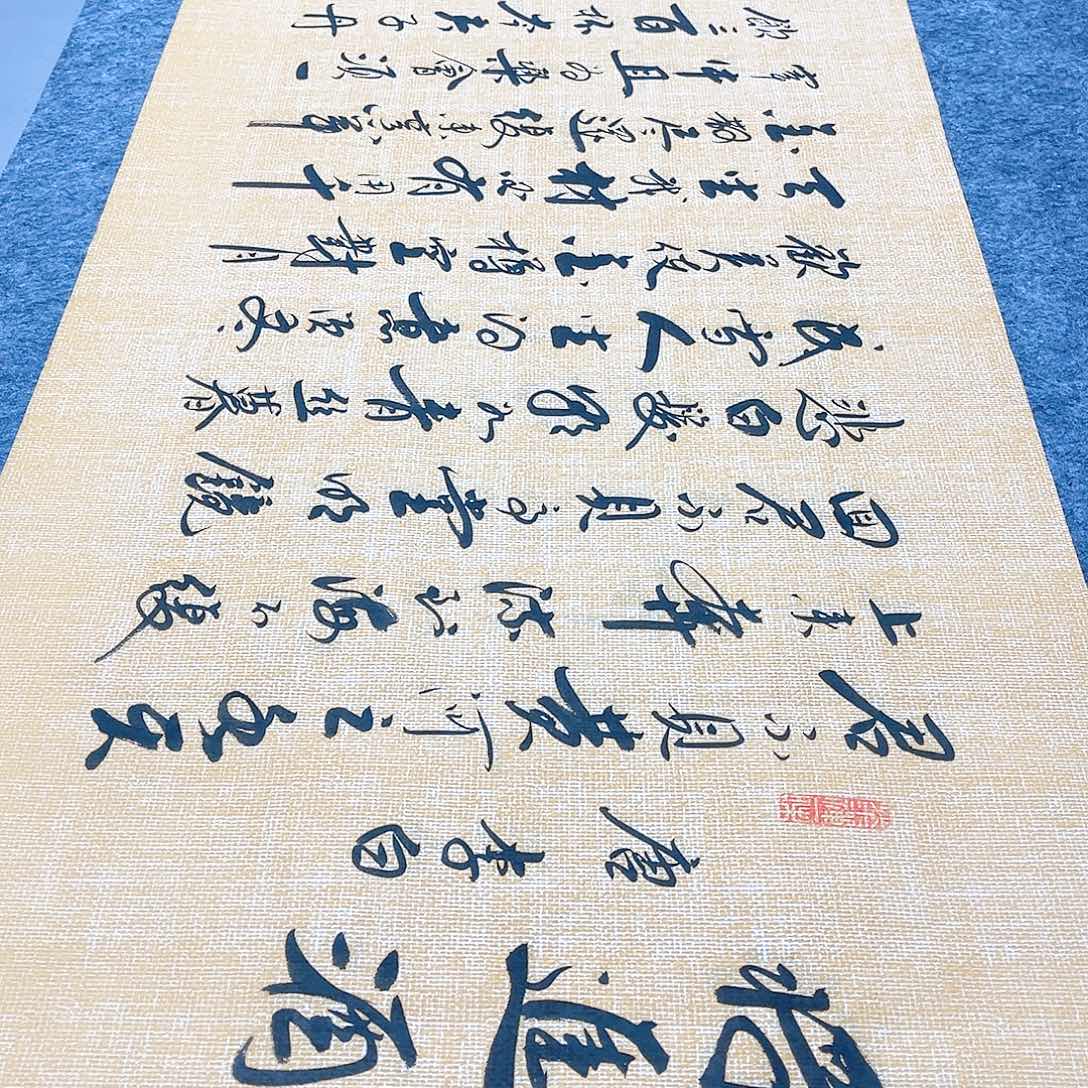 將進酒
唐李白
君不見黄河之水天
上来奔流到海不復
回君不見高堂明鏡
悲白髮朝如青絲暮
成雪人生得意須盡
歡莫使金樽空對月
天生我材必有用千
金散盡還復来烹羊
宰牛且為樂會須一
飲三百杯岑夫子丹